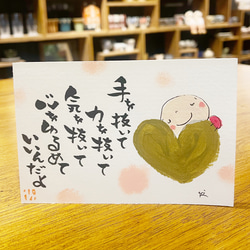 手を抜いて
力を抜いて
気を抜いて
心をゆるめて
いいんだよ